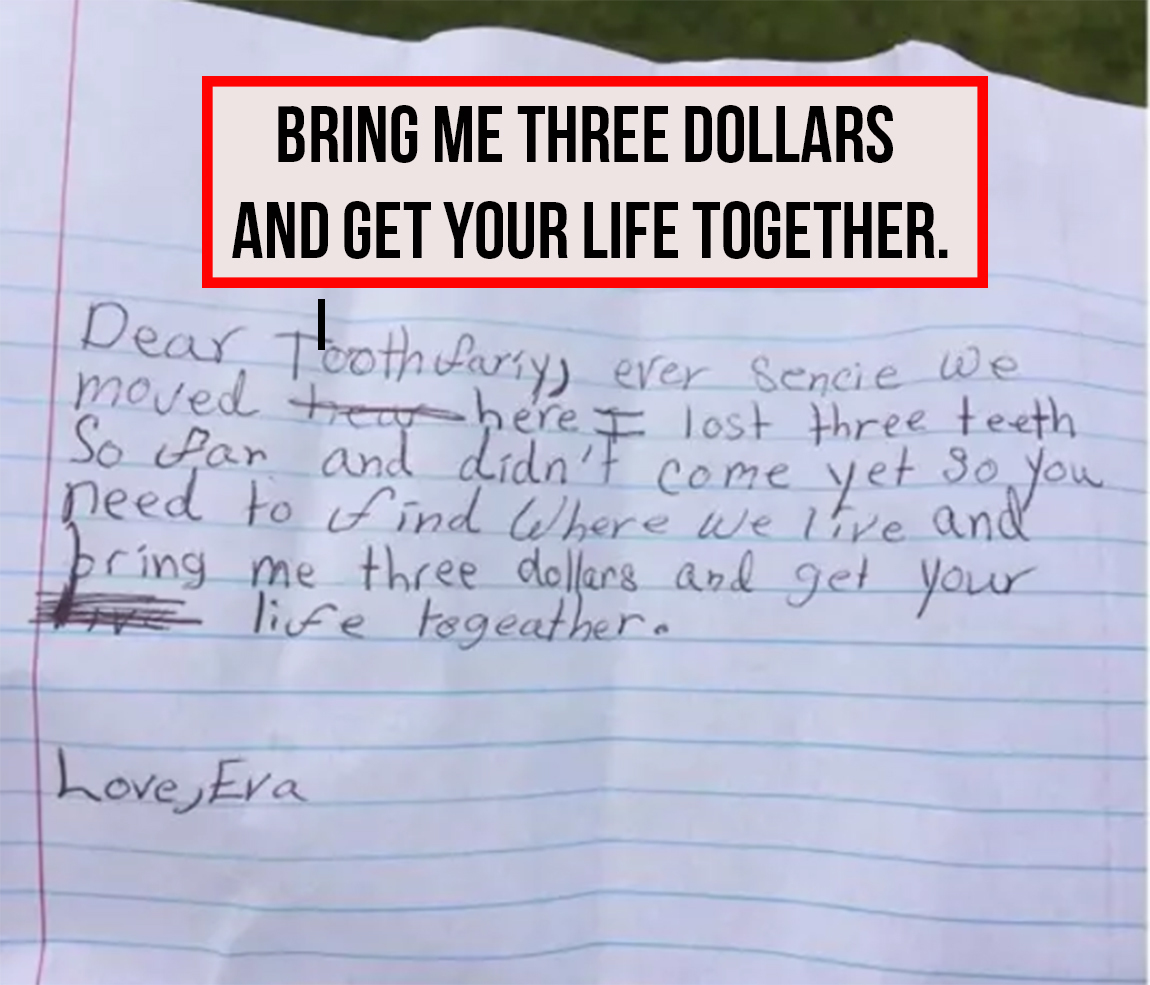 BRING ME THREE DOLLARS
AND GET YOUR LIFE TOGETHER.
Dear Toothfariy, ever sencie we
moved here I lost three teeth
So far and didn't come yet so you
need to find Where we live and
bring me three dollars and get your
life togeather.
Love, Eva